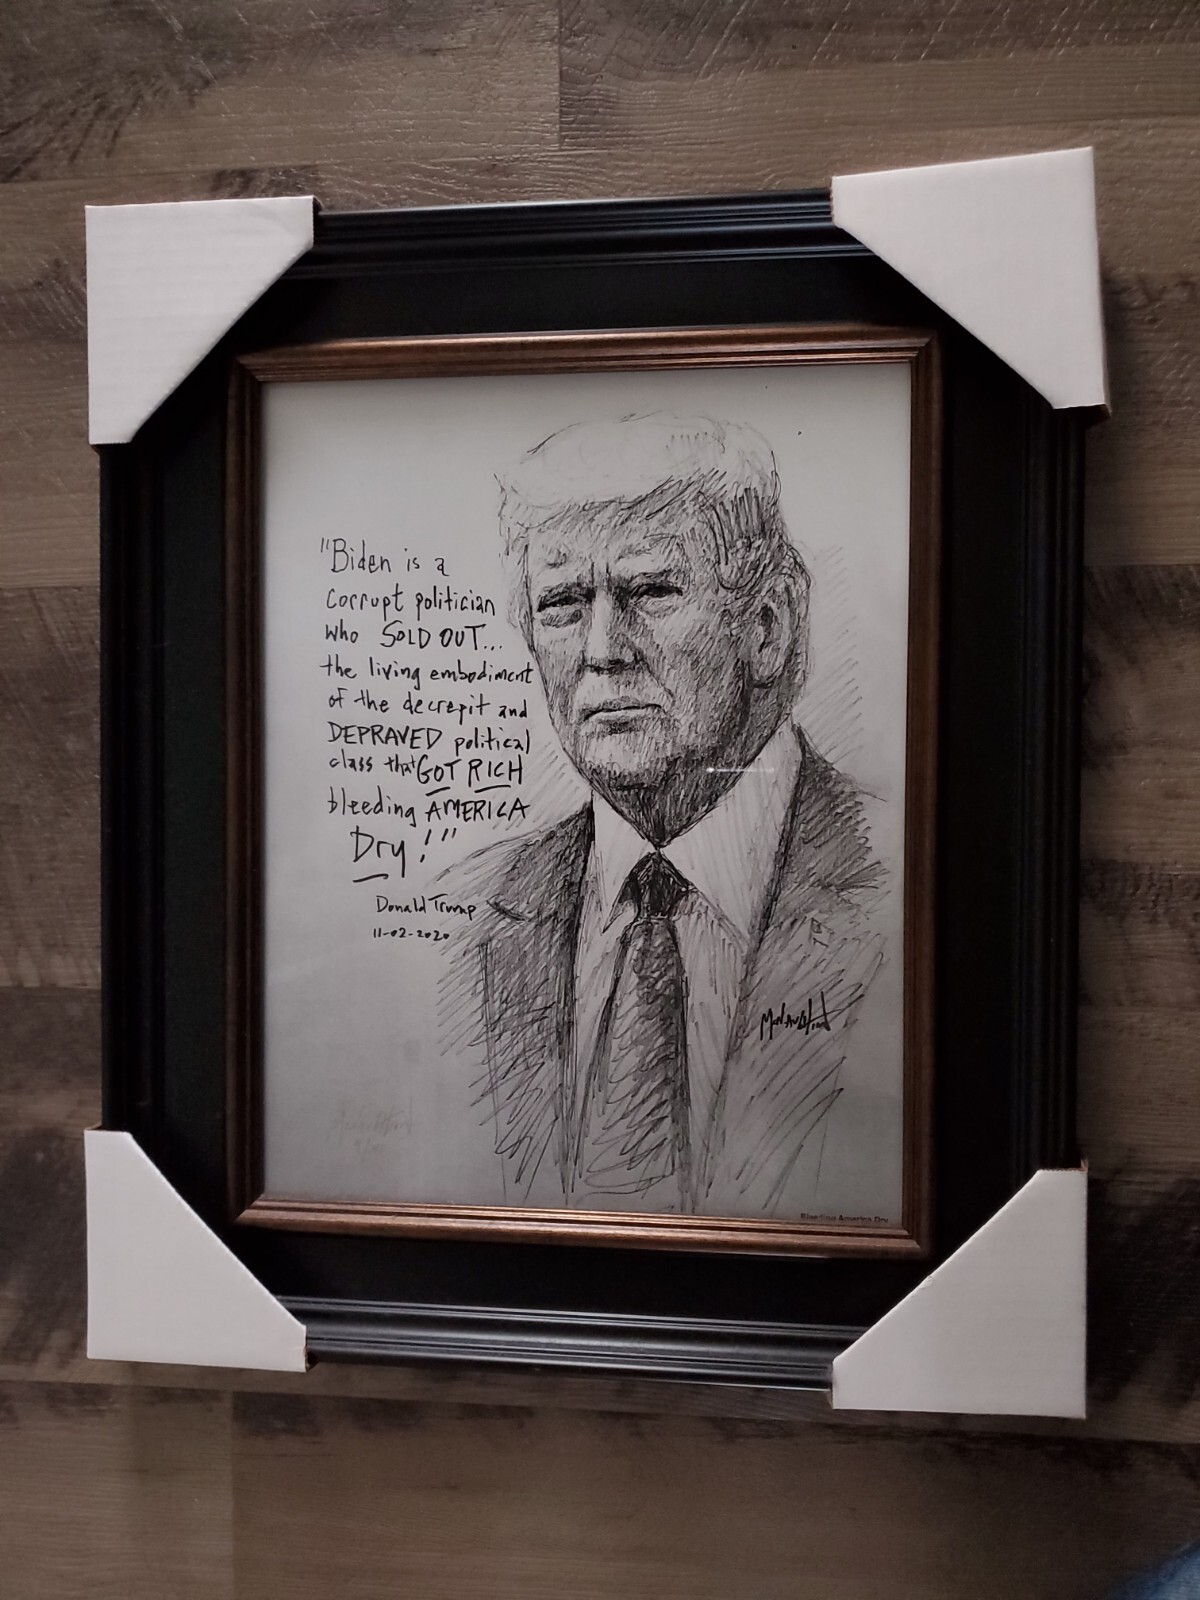 "Biden is a
corrupt politician
who SOLD OUT...
the living embodiment
of the decrepit and
DEPRAVED political
class that GOT RICH
bleeding AMERICA
Dry!"
Donald Trump
11-02-2020
McNaughton
Bleeding America Dry